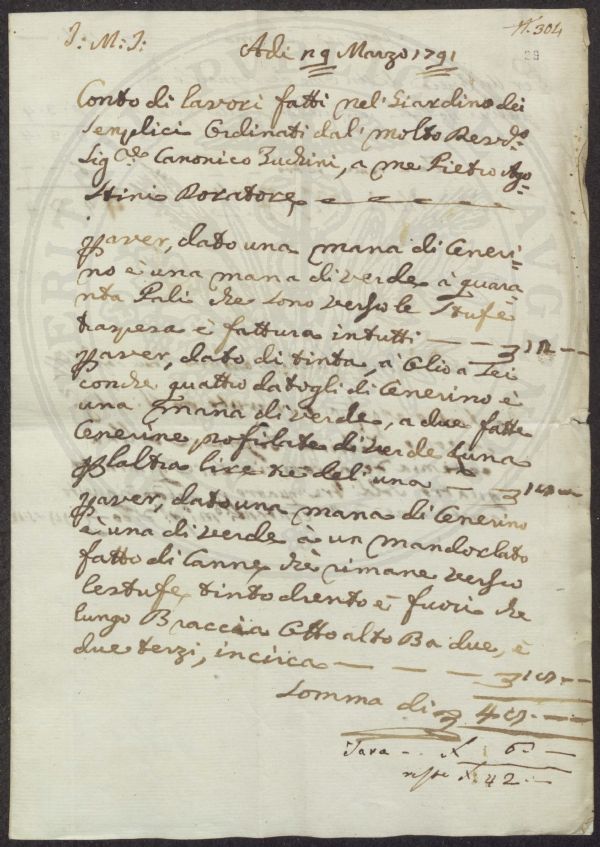 J: M: J:
N.° 304
Adi 29 Marzo 1791
29
Conto di lavori fatti nel' Giardino dei
Semplici Ordinati dal' molto Revdo:
Sig.re Canonico Zuchini, a me Pietro Ago-
stini Doratore
P aver, dato una mana di Ceneri-
no è una mana di verde à quara-
nta Pali che sono verso le Stufe
traspesa è fattura in tutti — — 12 — —
P aver, dato di tinta, à Olio a Sei
conche quattro datogli di Cenerino è
una mana di verde, a due fatte
Cenerine profilate di verde Luna
P laltra lire tre del' una — 18 — —
P aver, dato una mana di Cenerino
è una di verde à un mandorlato
fatto di Canne, chè rimane verso
lestufe, tinto drento è fuori che
lungo Braccia Otto alto Ba due, è
due terzi, incirca — — — — 18 — —
Somma di 48 — —
Tara — £ 6 —
resta £ 42 —